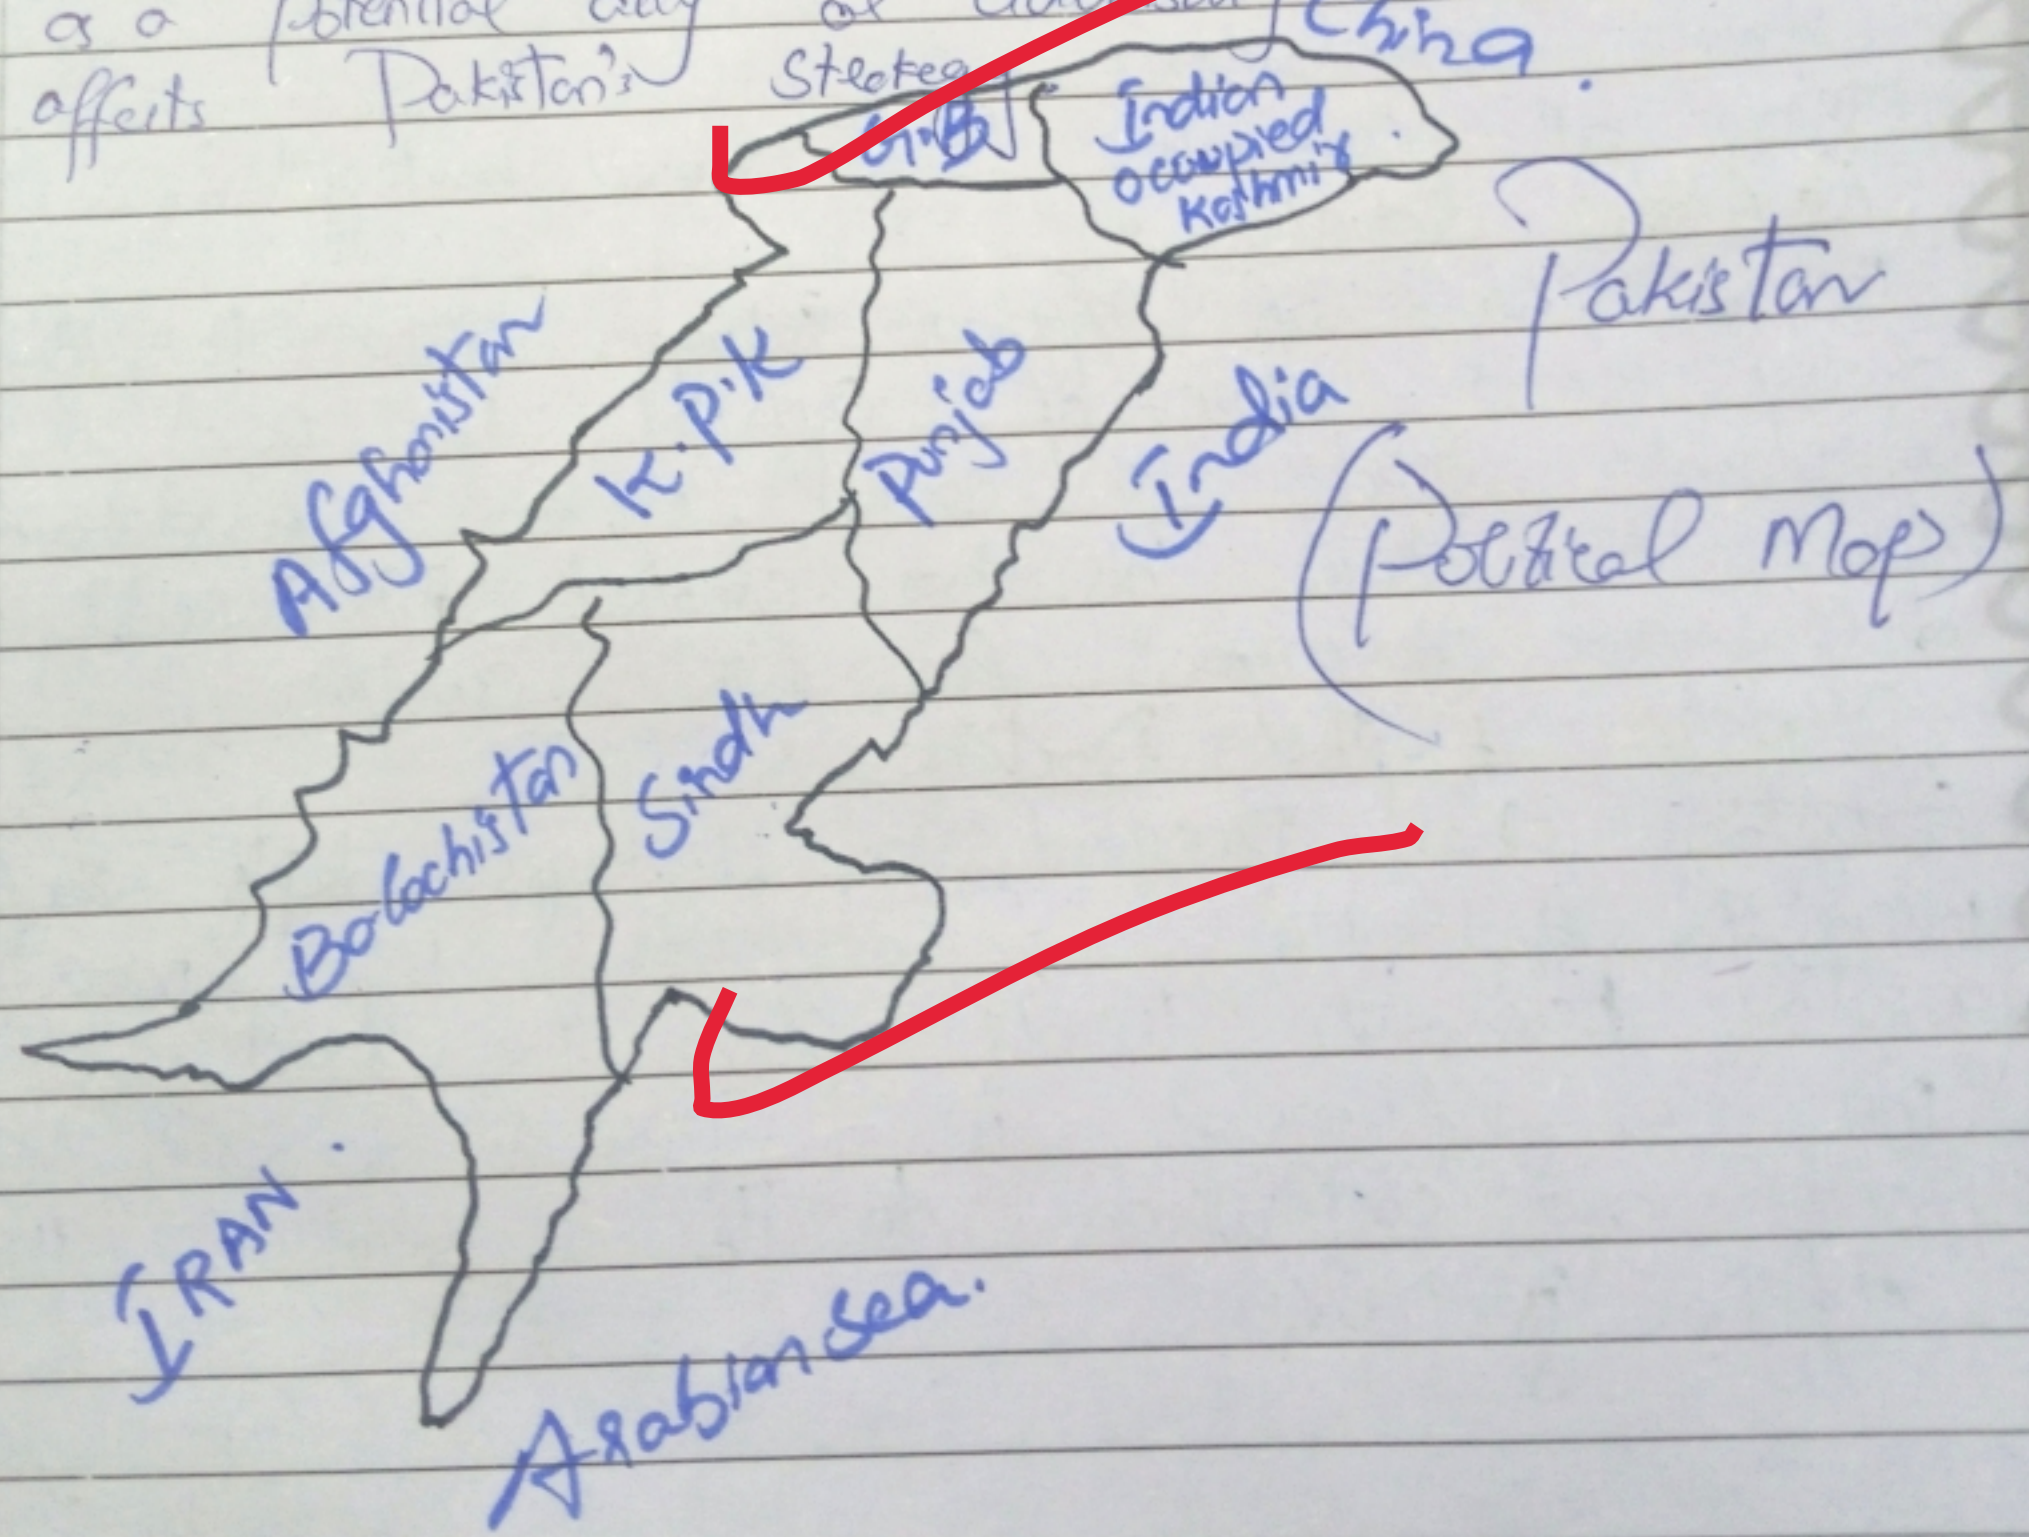 as a potential ally or adversary
affects Pakistan's
China.
G.B
Indian
occupied
Kashmir
Pakistan
(Political Map)
Afghanistan
K.P.K
Punjab
India
Balochistan
Sindh
IRAN.
Arabian sea.